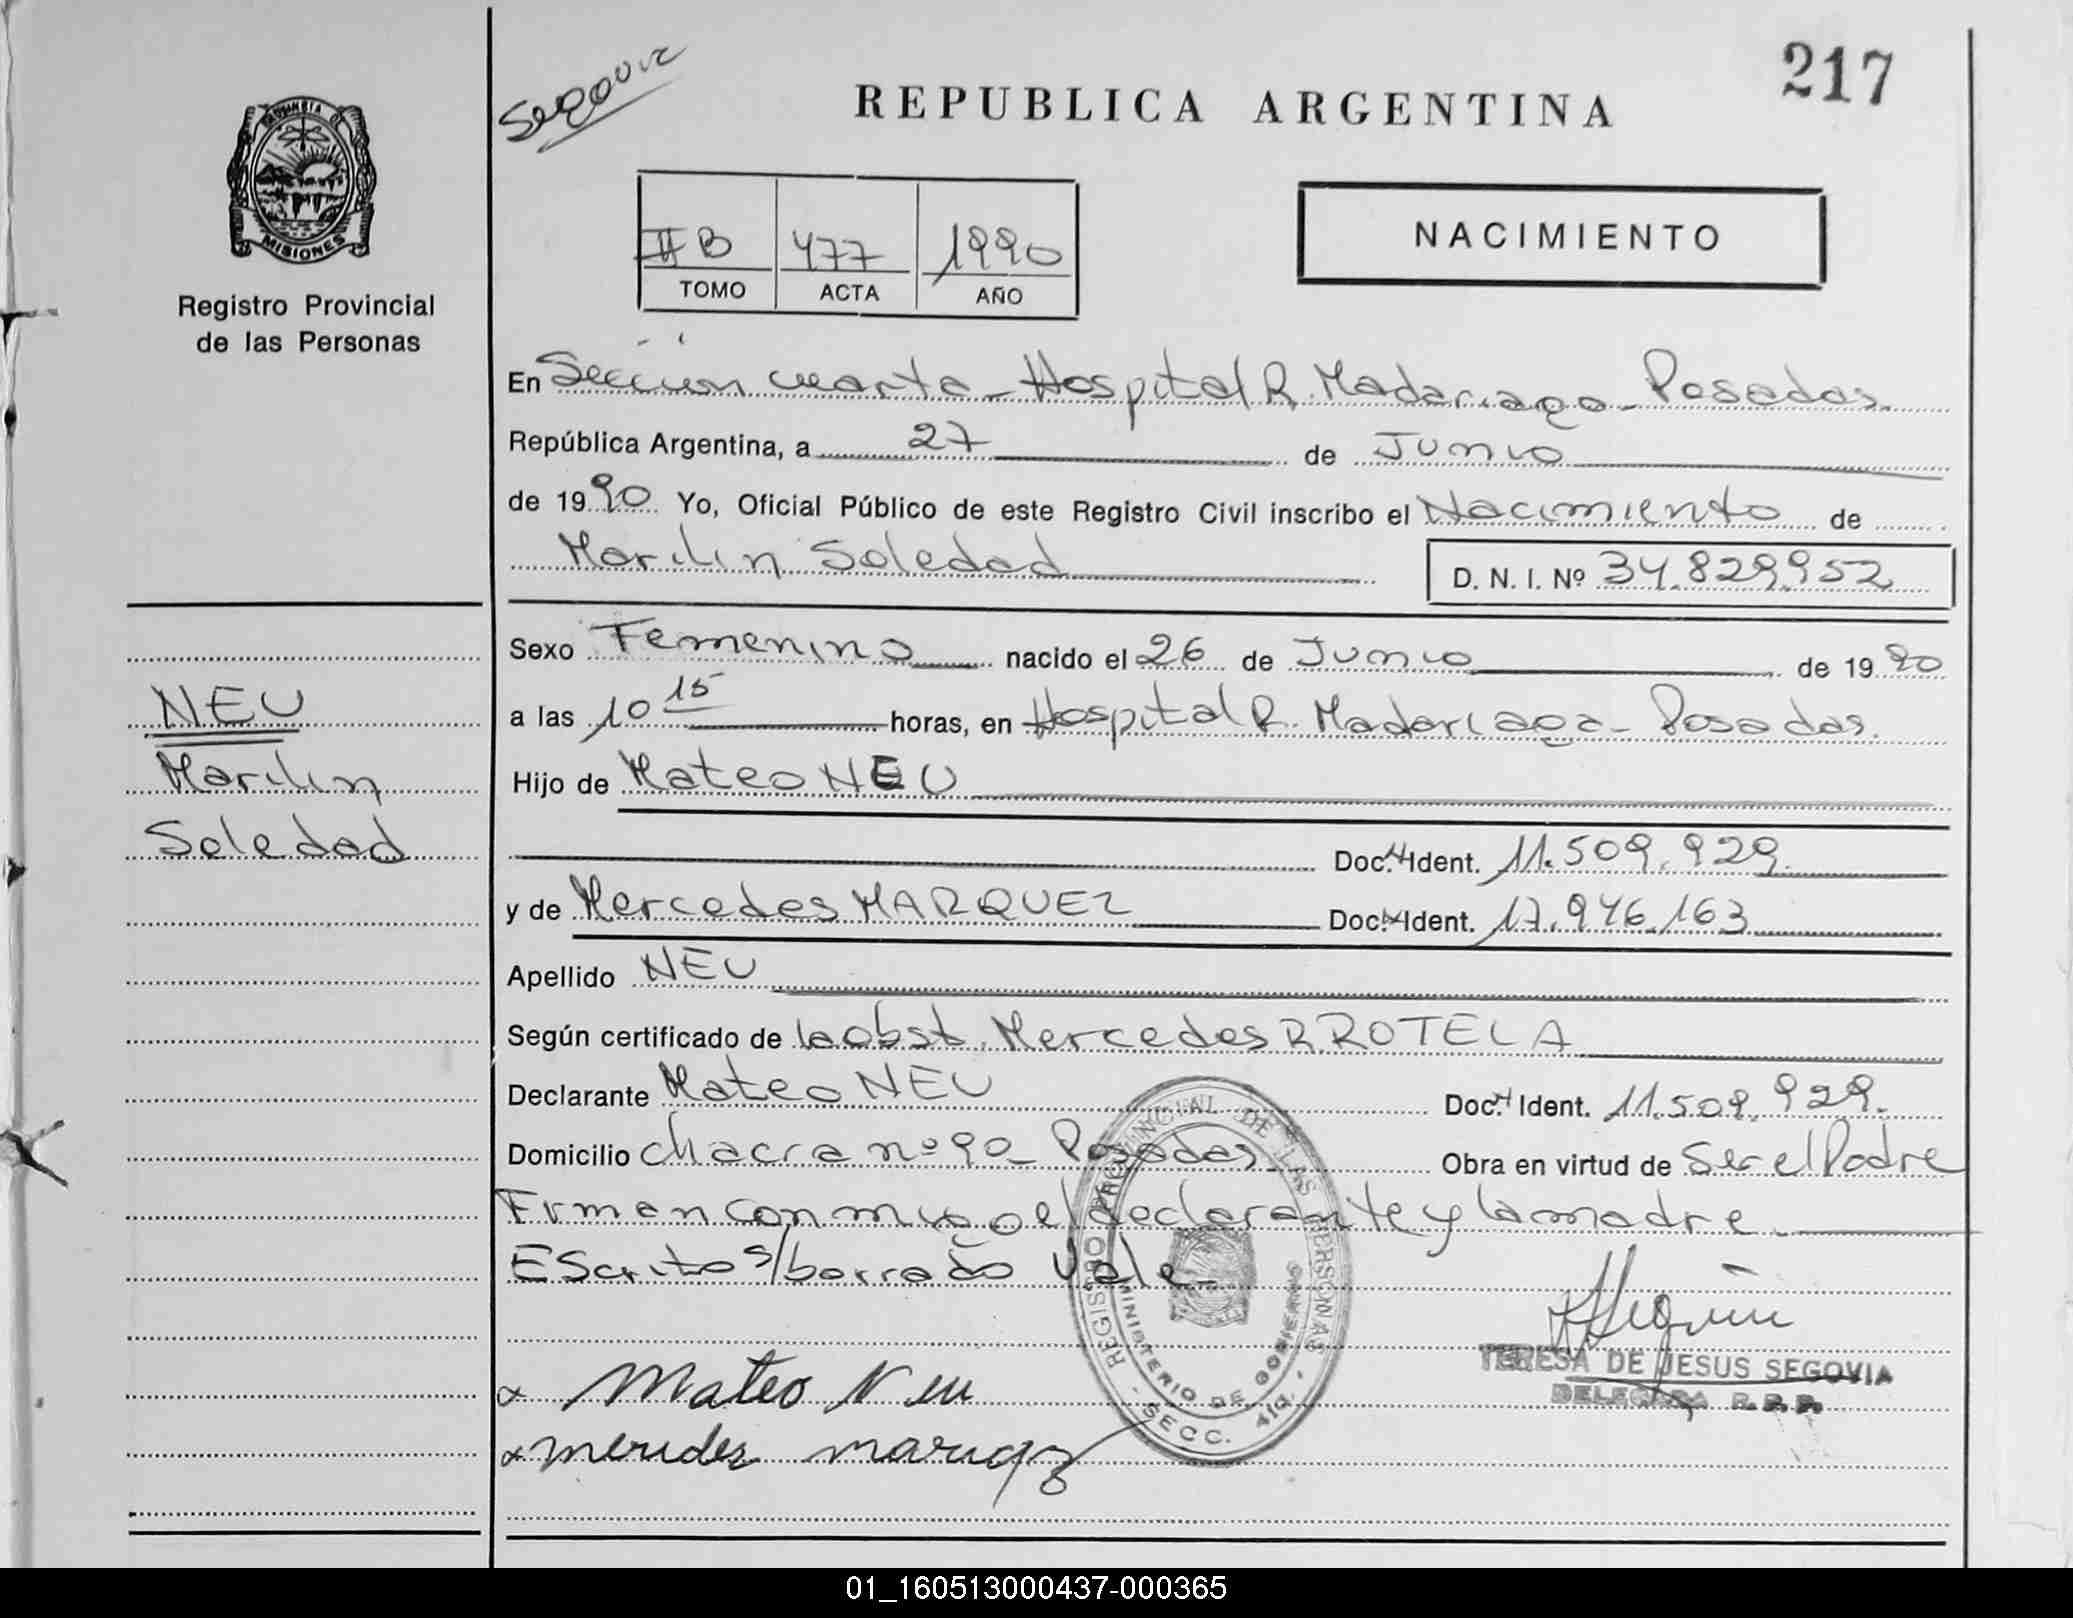 217
Segovia
REPUBLICA ARGENTINA
PROVINCIA DE
MISIONES
Registro Provincial
de las Personas
II B 477 1990
TOMO ACTA AÑO
NACIMIENTO
En Sección cuarta - Hospital R. Madariaga - Posadas
República Argentina, a 27 de Junio
de 1990 Yo, Oficial Público de este Registro Civil inscribo el Nacimiento de
Marilin Soledad D. N. I. Nº 34.829.952
Sexo Femenino nacido el 26 de Junio de 1990
a las 10 15 horas, en Hospital R. Madariaga - Posadas.
Hijo de Mateo NEU
Doc. N. Ident. 11.509.929.
y de Mercedes MARQUEZ Doc. N. Ident. 17.946.163
Apellido NEU
Según certificado de la obst. Mercedes R. ROTELA
Declarante Mateo NEU Doc. N. Ident. 11.509.929.
Domicilio Chacra nº 90 - Posadas Obra en virtud de Ser el Padre
Firman conmigo el declarante y la madre.
Escrito s/borrado Vale -
NEU
Marilin
Soledad
REGISTRO PROVINCIAL DE LAS PERSONAS
MINISTERIO DE GOBIERNO
- SECC. 4ta. -
TERESA DE JESUS SEGOVIA
DELEGADA R. P. P.
x Mateo Neu
x mercedes marquez
01_160513000437-000365